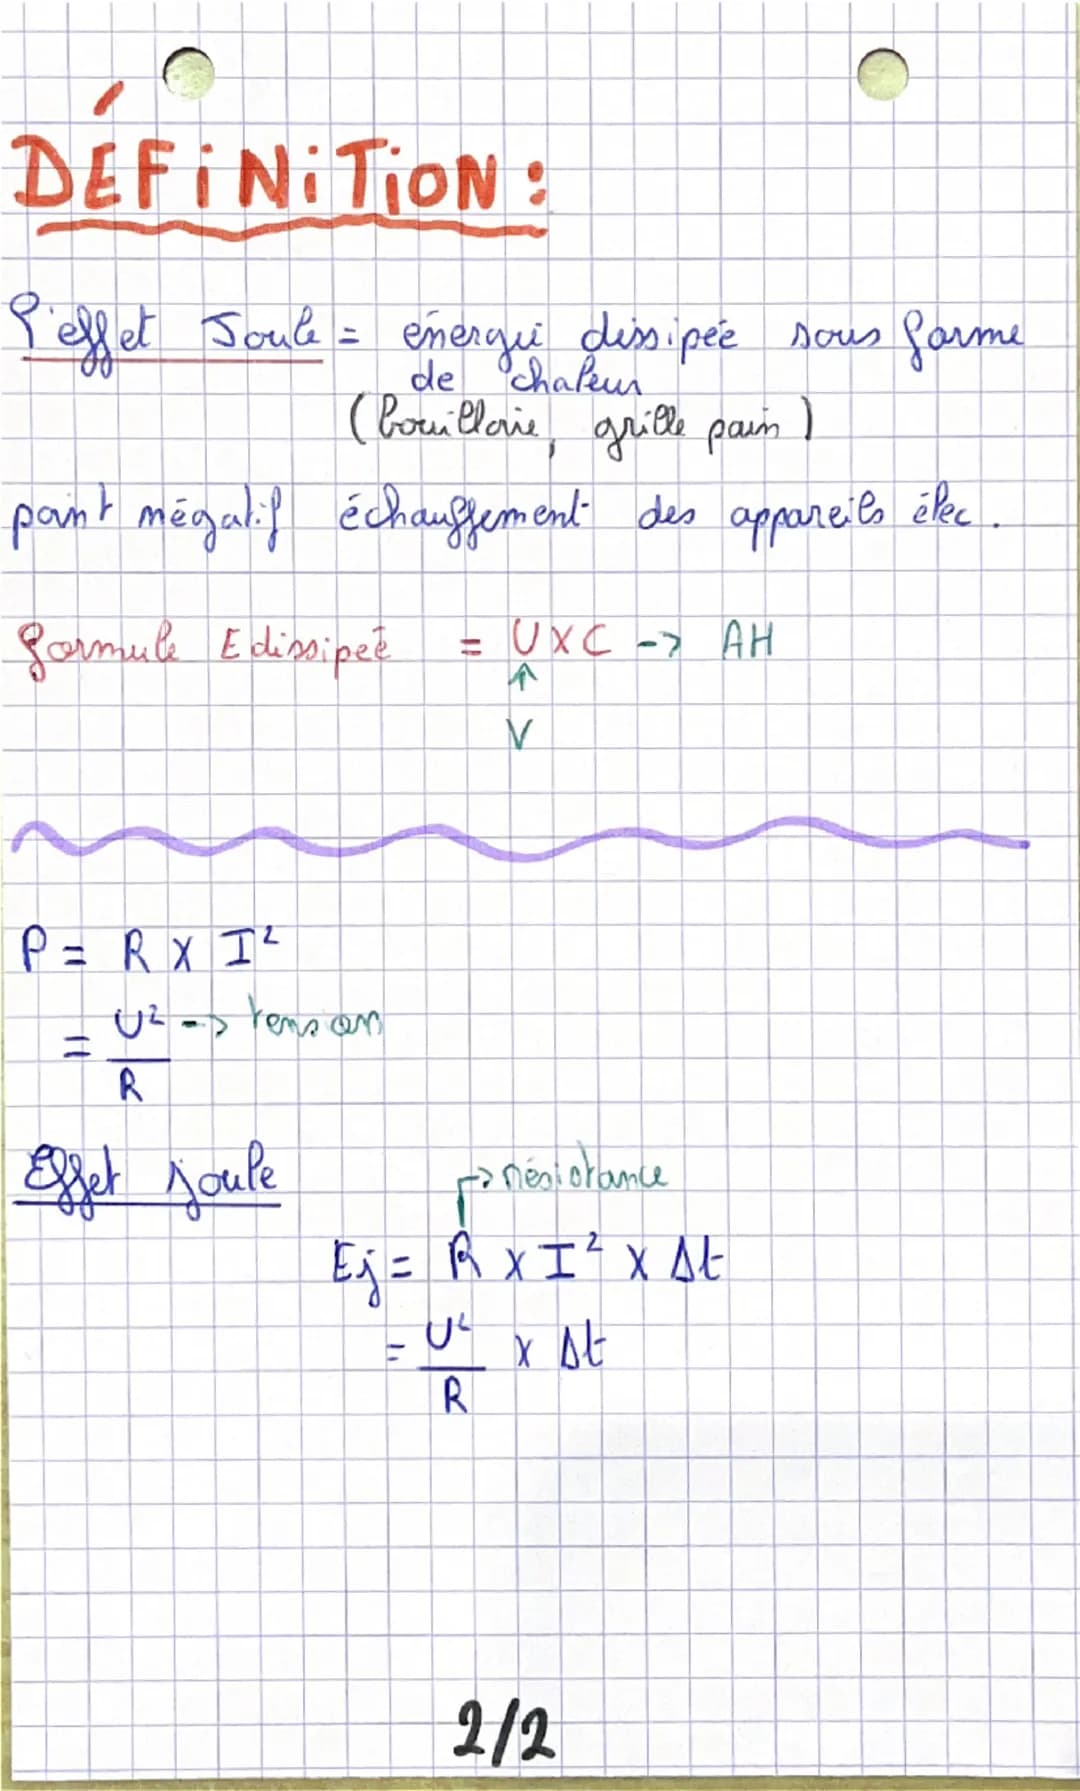 DÉFiNiTiON :
l'effet Joule = énergui dissipée sous forme
de chaleur
(bouilloire, grille pain)
point négatif échauffement des appareils élec.
formule E dissipée = U X C -> AH
V
P = R X I²
= U² -> tension
R
Effet joule
-> résistance
Ej = R x I² x Δt
= U² x Δt
R
2/2